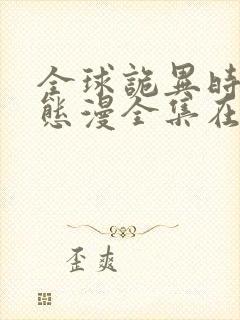 全球詭異時
態漫全集在
歪爽